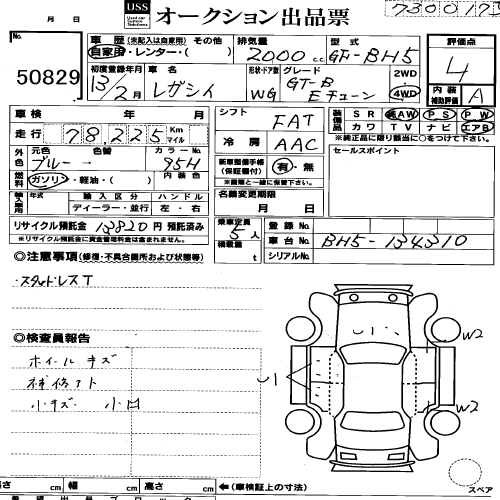 月 日
USS オークション出品票
730017
50829
車歴 (未記入は自家用) その他
自家用・レンター・( )
排気量
2000 cc
型式
GF-BH5
評価点
4
初度登録年月
13/2月
車名
レガシィ
形状・ドア数
WG
グレード
GT-B
Eチューン
2WD
4WD
内装
補助評価
A
車検 年 月
シフト
FAT
SR AW PS PW
カワ TV ナビ エアB
※純正品に限り該当に○をつけて下さい。
走行 78,225 Km マイル
冷房
AAC
セールスポイント
外色 元色 色替 カラーNo.
ブルー → 95H
新車整備手帳
(保証書付)
有・無
※車輌と一緒に保管下さい。
燃料 ガソリン・軽油・( ) 内装色
名義変更期限
月 日
年式 輸入区分 ハンドル
ディーラー・並行 左・右
リサイクル預託金 13820 円 預託済み
※リサイクル預託金に資金管理料金は含まれません。
乗車定員
5人
積載量
t
登録No.
車台No. BH5-134310
シリアルNo.
◎注意事項 (修復・不具合箇所および状態等)
・スタットレスT
◎検査員報告
ホイールキズ
補修アト
小キズ 小凹
W2
W2
cm 幅 cm 高さ cm ←(車検証上の寸法)
スペア